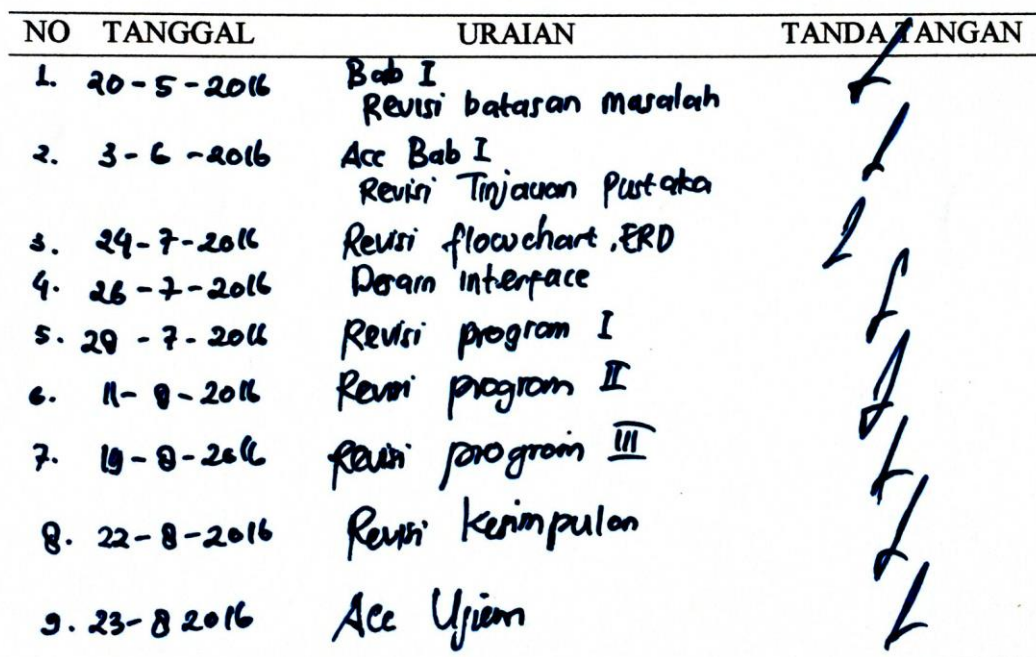 NO TANGGAL URAIAN TANDA TANGAN
1. 20-5-2016 Bab I
Revisi batasan masalah
2. 3-6-2016 Acc Bab I
Revisi Tinjauan Pustaka
3. 24-7-2016 Revisi flowchart, ERD
4. 26-7-2016 Desain interface
5. 29-7-2016 Revisi program I
6. 11-8-2016 Revisi program II
7. 19-8-2016 Revisi program III
8. 22-8-2016 Revisi Kesimpulan
9. 23-8 2016 Acc Ujian